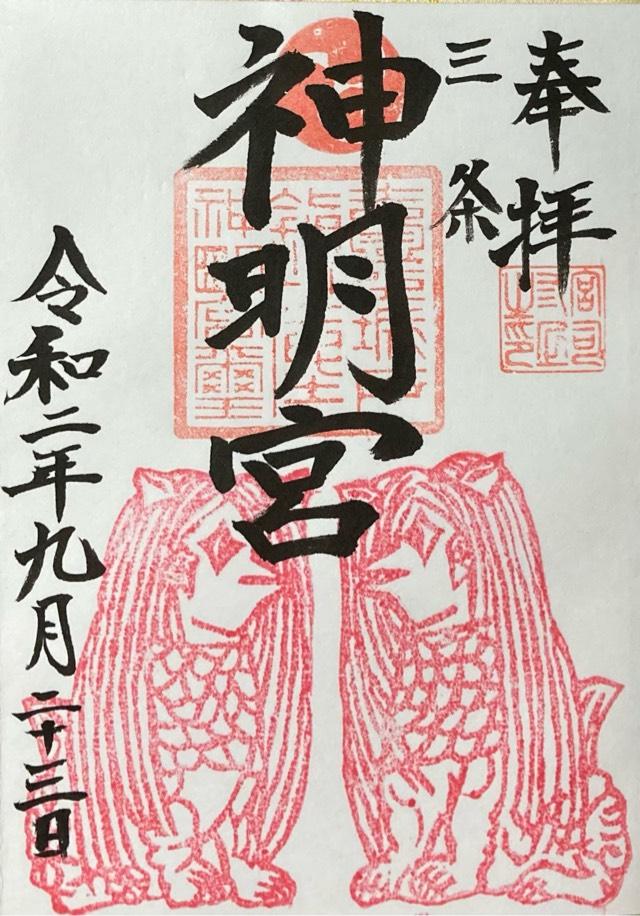 奉拝
三条
神明宮
令和二年九月二十三日